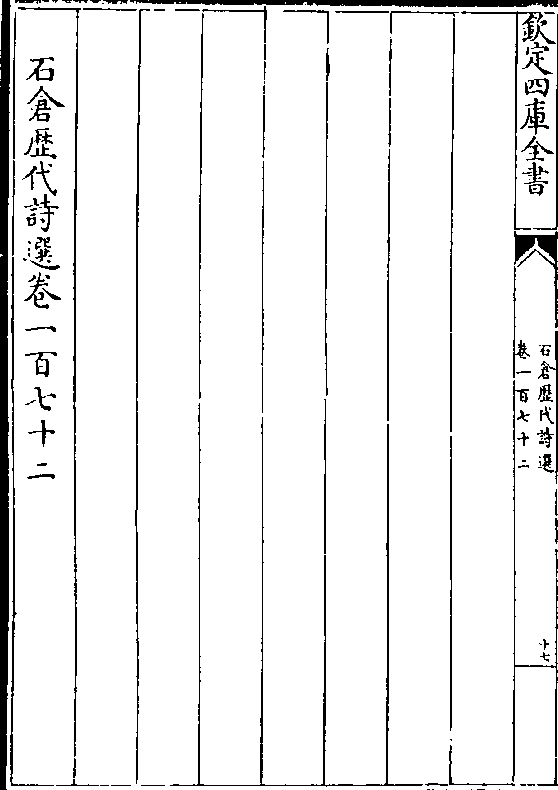 欽定四庫全書
石倉歷代詩選
卷一百七十二
十七
石倉歷代詩選卷一百七十二